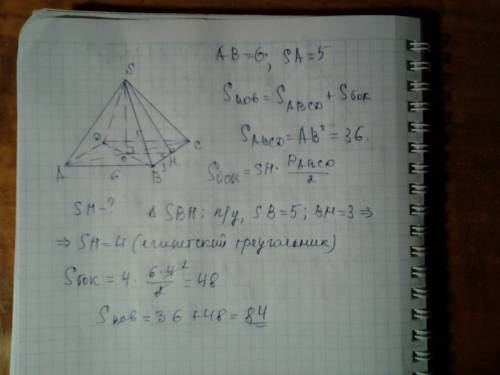 AB=6; SA=5
Sпов=SABCD+Sбок
SABCD=AB²=36.
Sбок=SH·PABCD/2
S
D
C
H
O
A
6
B
3
SH-? Δ SBH: п/у, SB=5; BH=3 ⇒
⇒ SH=4 (египетский треугольник)
Sбок=4·6·4²/2=48
Sпов=36+48=84